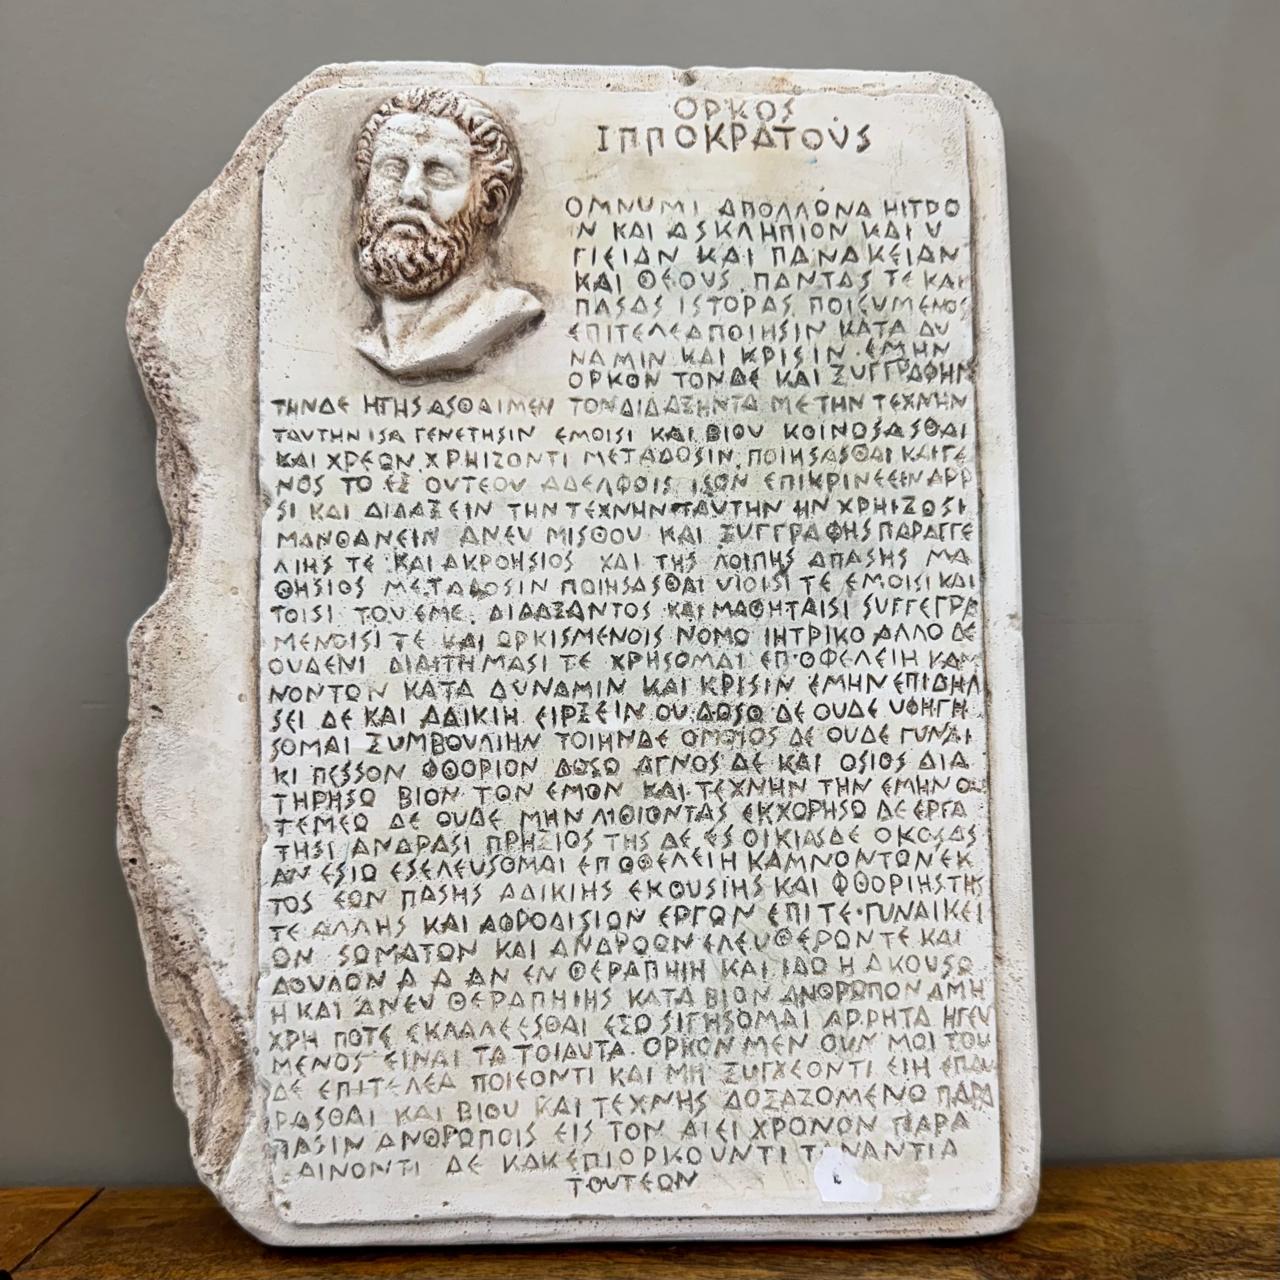 ΟΡΚΟΣ
ΙΠΠΟΚΡΑΤΟΥΣ
ΟΜΝΥΜΙ ΑΠΟΛΛΩΝΑ ΗΙΤΡΟ
Ν ΚΑΙ ΑΣΚΛΗΠΙΟΝ ΚΑΙ Υ
ΓΙΕΙΑΝ ΚΑΙ ΠΑΝΑΚΕΙΑΝ
ΚΑΙ ΘΕΟΥΣ ΠΑΝΤΑΣ ΤΕ ΚΑΙ
ΠΑΣΑΣ ΙΣΤΟΡΑΣ ΠΟΙΕΥΜΕΝΟΣ
ΕΠΙΤΕΛΕΑ ΠΟΙΗΣΙΝ ΚΑΤΑ ΔΥ
ΝΑΜΙΝ ΚΑΙ ΚΡΙΣΙΝ ΕΜΗΝ
ΟΡΚΟΝ ΤΟΝΔΕ ΚΑΙ ΞΥΓΓΡΑΦΗΝ
ΤΗΝΔΕ ΗΓΗΣΑΣΘΑΙ ΜΕΝ ΤΟΝ ΔΙΔΑΞΗΝΤΑ ΜΕ ΤΗΝ ΤΕΧΝΗΝ
ΤΑΥΤΗΝ ΙΣΑ ΓΕΝΕΤΗΣΙΝ ΕΜΟΙΣΙ ΚΑΙ ΒΙΟΥ ΚΟΙΝΩΣΑΣΘΑΙ
ΚΑΙ ΧΡΕΩΝ ΧΡΗΙΖΟΝΤΙ ΜΕΤΑΔΟΣΙΝ ΠΟΙΗΣΑΣΘΑΙ ΚΑΙ ΓΕ
ΝΟΣ ΤΟ ΕΞ ΟΥΤΕΟΥ ΑΔΕΛΦΟΙΣ ΙΣΟΝ ΕΠΙΚΡΙΝΕΕΙΝ ΑΡΡ
ΣΙ ΚΑΙ ΔΙΔΑΞΕΙΝ ΤΗΝ ΤΕΧΝΗΝ ΤΑΥΤΗΝ ΗΝ ΧΡΗΙΖΩΣΙ
ΜΑΝΘΑΝΕΙΝ ΑΝΕΥ ΜΙΣΘΟΥ ΚΑΙ ΞΥΓΓΡΑΦΗΣ ΠΑΡΑΓΓΕ
ΛΙΗΣ ΤΕ ΚΑΙ ΑΚΡΟΗΣΙΟΣ ΧΑΙ ΤΗΣ ΛΟΙΠΗΣ ΑΠΑΣΗΣ ΜΑ
ΘΗΣΙΟΣ ΜΕΤΑΔΟΣΙΝ ΠΟΙΗΣΑΣΘΑΙ ΥΙΟΙΣΙ ΤΕ ΕΜΟΙΣΙ ΚΑΙ
ΤΟΙΣΙ ΤΟΥ ΕΜΕ ΔΙΔΑΞΑΝΤΟΣ ΚΑΙ ΜΑΘΗΤΑΙΣΙ ΣΥΓΓΕΓΡΑ
ΜΕΝΟΙΣΙ ΤΕ ΚΑΙ ΩΡΚΙΣΜΕΝΟΙΣ ΝΟΜΟ ΙΗΤΡΙΚΟ ΑΛΛΟ ΔΕ
ΟΥΔΕΝΙ ΔΙΑΙΤΗΜΑΣΙ ΤΕ ΧΡΗΣΟΜΑΙ ΕΠ ΟΦΕΛΕΙΗ ΚΑΜ
ΝΟΝΤΩΝ ΚΑΤΑ ΔΥΝΑΜΙΝ ΚΑΙ ΚΡΙΣΙΝ ΕΜΗΝ ΕΠΙ ΔΗΛ
ΣΕΙ ΔΕ ΚΑΙ ΑΔΙΚΙΗ ΕΙΡΞΕΙΝ ΟΥ ΔΟΣΟ ΔΕ ΟΥΔΕ ΥΦΗΓΗ
ΣΟΜΑΙ ΞΥΜΒΟΥΛΙΗΝ ΤΟΙΗΝΔΕ ΟΜΟΙΟΣ ΔΕ ΟΥΔΕ ΓΥΝΑΙ
ΚΙ ΠΕΣΣΟΝ ΦΘΟΡΙΟΝ ΔΟΣΩ ΑΓΝΟΣ ΔΕ ΚΑΙ ΟΣΙΟΣ ΔΙΑ
ΤΗΡΗΣΩ ΒΙΟΝ ΤΟΝ ΕΜΟΝ ΚΑΙ ΤΕΧΝΗΝ ΤΗΝ ΕΜΗΝ ΟΥ
ΤΕΜΕΩ ΔΕ ΟΥΔΕ ΜΗΝ ΛΙΘΙΟΝΤΑΣ ΕΚΧΟΡΗΣΩ ΔΕ ΕΡΓΑ
ΤΗΣΙ ΑΝΔΡΑΣΙ ΠΡΗΞΙΟΣ ΤΗΣ ΔΕ ΕΣ ΟΙΚΙΑΣ ΔΕ ΟΚΟΣΑΣ
ΑΝ ΕΣΙΩ ΕΣΕΛΕΥΣΟΜΑΙ ΕΠ ΩΦΕΛΕΙΗ ΚΑΜΝΟΝΤΩΝ ΕΚ
ΤΟΣ ΕΩΝ ΠΑΣΗΣ ΑΔΙΚΙΗΣ ΕΚΟΥΣΙΗΣ ΚΑΙ ΦΘΟΡΙΗΣ ΤΗΣ
ΤΕ ΑΛΛΗΣ ΚΑΙ ΑΦΡΟΔΙΣΙΩΝ ΕΡΓΩΝ ΕΠΙ ΤΕ ΓΥΝΑΙΚΕΙ
ΩΝ ΣΩΜΑΤΩΝ ΚΑΙ ΑΝΔΡΩΩΝ ΕΛΕΥΘΕΡΩΝ ΤΕ ΚΑΙ
ΔΟΥΛΩΝ Α Α ΑΝ ΕΝ ΘΕΡΑΠΗΙΗ ΚΑΙ ΙΔΩ Η ΑΚΟΥΣΩ
Η ΚΑΙ ΑΝΕΥ ΘΕΡΑΠΗΙΗΣ ΚΑΤΑ ΒΙΟΝ ΑΝΘΡΩΠΩΝ Α ΜΗ
ΧΡΗ ΠΟΤΕ ΕΚΛΑΛΕΕΣΘΑΙ ΕΞΟ ΣΙΓΗΣΟΜΑΙ ΑΡΡΗΤΑ ΗΓΕΥ
ΜΕΝΟΣ ΕΙΝΑΙ ΤΑ ΤΟΙΑΥΤΑ ΟΡΚΟΝ ΜΕΝ ΟΥΝ ΜΟΙ ΤΟΥ
ΔΕ ΕΠΙΤΕΛΕΑ ΠΟΙΕΟΝΤΙ ΚΑΙ ΜΗ ΞΥΓΧΕΟΝΤΙ ΕΙΗ ΕΠΑΥ
ΡΑΣΘΑΙ ΚΑΙ ΒΙΟΥ ΚΑΙ ΤΕΧΝΗΣ ΔΟΞΑΖΟΜΕΝΩ ΠΑΡΑ
ΠΑΣΙΝ ΑΝΘΡΩΠΟΙΣ ΕΙΣ ΤΟΝ ΑΙΕΙ ΧΡΟΝΟΝ ΠΑΡΑ
ΑΙΝΟΝΤΙ ΔΕ ΚΑΚΕΠΙΟΡΚΟΥΝΤΙ ΤΑΝΑΝΤΙΑ
ΤΟΥΤΕΩΝ